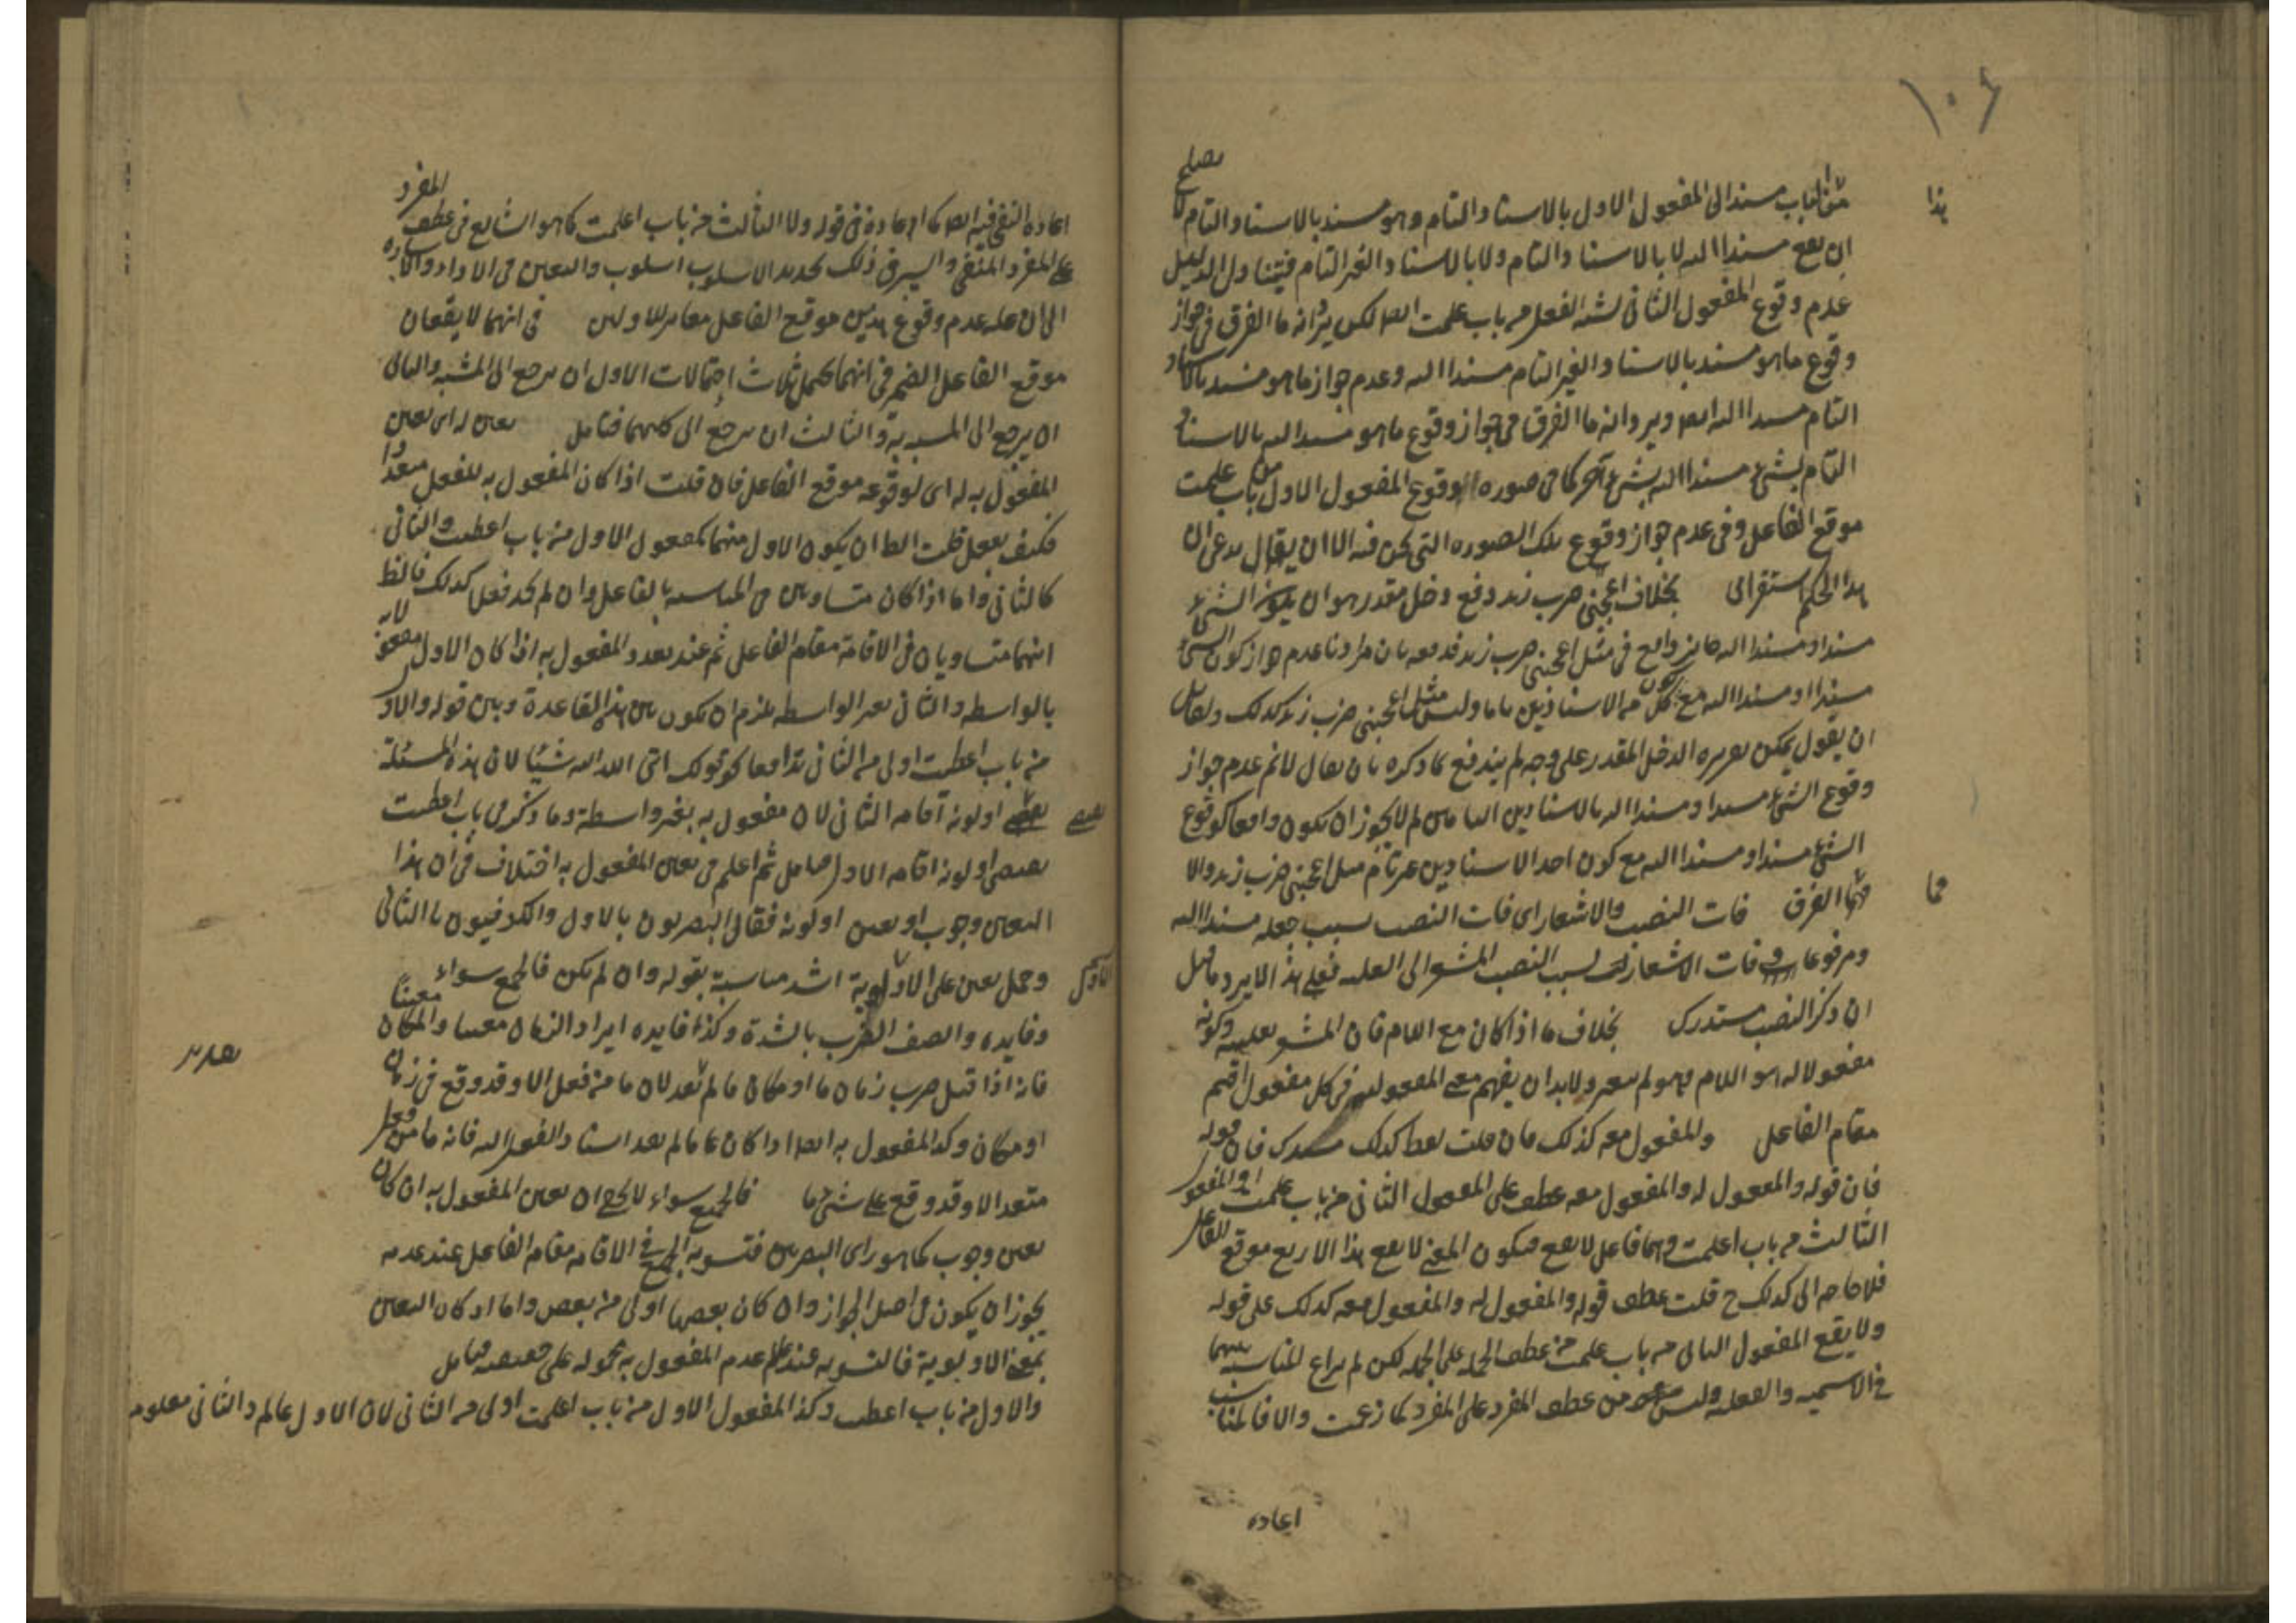 ١٠٤
هذا
يصلح
الباب مسندا الى المفعول الاول بالاسناد التام وهو مسند بالاسناد التام لا
ان يقع مسندا اليه لا بالاسناد التام ولا بالاسناد الغير التام فيتناول الدليل
عدم وقوع المفعول الثانى لشبه الفعل من باب علمت ايضا لكن يرد انه ما الفرق فى جواز
وقوع ما هو مسند بالاسناد الغير التام مسندا اليه وعدم جواز ما هو مسند بالاسناد
التام مسندا اليه ايضا ويرد انه ما الفرق فى جواز وقوع ما هو مسند اليه بالاسناد
التام لشئ مسندا اليه بشئ آخر كما فى صورة وقوع المفعول الاول من باب علمت
موقع الفاعل وفى عدم جواز وقوع تلك الصورة التى نحن فيه الا ان يقال يدعى ان
هذا الحكم استقرائى بخلاف اعجبنى ضرب زيد دفع دخل مقدر هو ان يكون الشئ
مسندا ومسندا اليه جائز واقع فى مثل اعجبنى ضرب زيد فدفعه بان مرادنا عدم جواز كون الشئ
مسندا ومسندا اليه مع كون كل من الاسنادين تاما وليس مثل اعجبنى ضرب زيد كذلك ولقائل
ان يقول يمكن تقريره الدخل المقدر على وجه لم يندفع بما ذكره بان يقال لا نم عدم جواز
وقوع الشئ مسندا ومسندا اليه بالاسنادين التامين لم لا يجوز ان يكون واقعا كوقوع
الشئ مسندا ومسندا اليه مع كون احد الاسنادين غير تام مثل اعجبنى ضرب زيد والا
فما الفرق فات النصب والاشعار اى فات النصب بسبب جعله مسندا اليه
فما
ومرفوعا وفات الاشعار بسبب النصب المشعر الى العلية فعلى هذا لا يرد ما قيل
ان ذكر النصب مستدرك بخلاف ما اذا كان مع اللام فان المشعر بعليته وكونه
مفعولا له هو اللام وهو لم يتغير ولا بد ان يفهم معنى المفعولية فى كل مفعول اقيم
مقام الفاعل والمفعول معه كذلك فان قلت لفظ كذلك مستدرك فان قوله
فان قوله والمفعول له والمفعول معه عطف على المفعول الثانى من باب علمت او المفعول
الثالث من باب اعلمت وهما فاعل لا يقع فيكون المعنى لا يقع هذا الاربع موقع الفاعل
فلا حاجة الى كذلك ح قلت عطف قوله والمفعول له والمفعول معه كذلك على قوله
ولا يقع المفعول الثانى من باب علمت من عطف الجملة على الجملة لكن لم يراع المناسبة بينهما
فى الاسمية والفعلية وليس من عطف المفرد على المفرد كما زعمت والا فالمناسب
اعادة
اعادة النفى فيه ايضا كما اعاده فى قوله ولا الثالث من باب اعلمت كما هو الشايع فى عطف المفرد
على المفرد المنفى والسر فى ذلك تجديد الاسلوب اسلوب والتعيين فى الاداء والاشارة
الى ان علة عدم وقوع هذين موقع الفاعل مغاير للاولين فى انهما لا يقعان
موقع الفاعل الضمير فى انهما يحتمل ثلاث احتمالات الاول ان يرجع الى المشبه والثانى
ان يرجع الى المشبه به والثالث ان يرجع الى كليهما فتامل تعين له اى تعين
المفعول به له اى لوقوعه موقع الفاعل فان قلت اذا كان المفعول به للفعل متعددا
فكيف يفعل قلت الظ ان يكون الاول منهما كمفعول الاول من باب اعطيت والثانى
كالثانى واما اذا كان متساويين فى المناسبة بالفاعل وان لم تجد فعلا كذلك فالظ
انهما متساويان فى الاقامة مقام الفاعل ثم عند تعدد المفعول به اذا كان الاول مفعولا به
بالواسطة والثانى بغير الواسطة يلزم ان يكون بين هذه القاعدة وبين قوله والاول
من باب اعطيت اولى من الثانى تدافعا كقولك اتى الله اليه شيئا لان هذه المسئلة
يقتضى اولوية اقامة الثانى لان مفعول به بغير واسطة وما ذكر فى باب اعطيت
يقتضى
يقتضى اولوية اقامة الاول فتامل ثم اعلم فى تعين المفعول به اختلاف فى ان هذا
التعين وجوب او تعين اولوية فقال البصريون بالاول والكوفيون بالثانى
وحمل تعين على الاولوية اشد مناسبة بقوله وان لم يكن فالجميع سواء
الاول
وفايدة وصف الضرب بالشدة وكذا فايدة ايراد الزمان معينا والمكان معينا
فانه اذا قيل ضرب زمان ما او مكان ما لم يفد لان ما من فعل الا وقد وقع فى زمان
او مكان وكذا المفعول به ايضا اذا كان عاما لم يفد اسناد الفعل اليه فانه ما من فعل
متعد الا وقد وقع على شئ ما فالجميع سواء لا يخفى ان تعين المفعول به ان كان
تعين وجوب كما هو راى البصريين فتسوية الجميع فى الاقامة مقام الفاعل عند عدمه
يجوز ان يكون فى اصل الجواز وان كان بعضها اولى من بعض واما اذ كان التعين
بمعنى الاولوية فالتسوية عند عدم المفعول به محمولة على حقيقته فتامل
والاول من باب اعطيت وكذا المفعول الاول من باب اعلمت اولى من الثانى لان الاول عالم والثانى معلوم